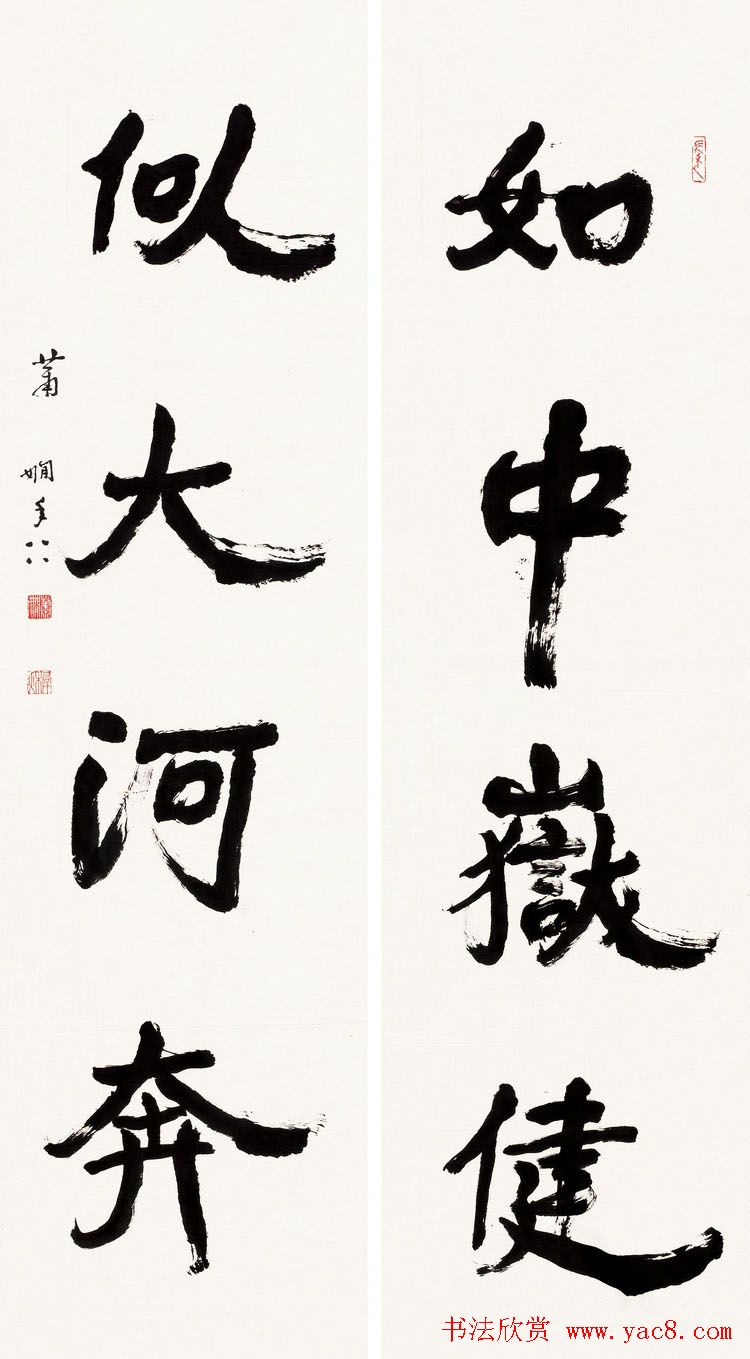 如中嶽健
似大河奔
蕭嫻年八八
书法欣赏 www.yac8.com